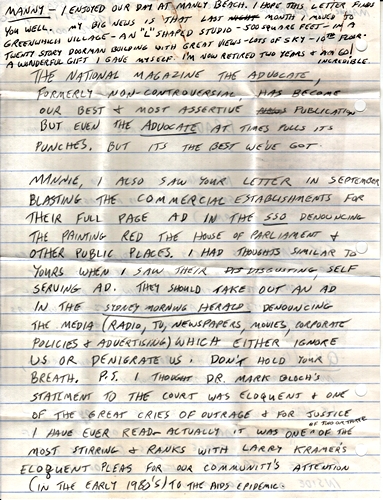 MANNY - I ENJOYED OUR DAY AT MANLY BEACH. I HOPE THIS LETTER FINDS
YOU WELL. MY BIG NEWS IS THAT LAST MONTH I MOVED TO
GREENWHICH VILLAGE - AN "L" SHAPED STUDIO - 500 SQUARE FEET - IN A
TWENTY STORY DOORMAN BUILDING WITH GREAT VIEWS - LOTS OF SKY - 16TH FLOOR.
A WONDERFUL GIFT I GAVE MYSELF. I'M NOW RETIRED TWO YEARS & AM 60!
INCREDIBLE.
THE NATIONAL MAGAZINE THE ADVOCATE,
FORMERLY NON-CONTROVERSIAL, HAS BECOME
OUR BEST & MOST ASSERTIVE PUBLICATION
BUT EVEN THE ADVOCATE AT TIMES PULLS ITS
PUNCHES. BUT IT'S THE BEST WE'VE GOT.
MANNIE, I ALSO SAW YOUR LETTER IN SEPTEMBER
BLASTING THE COMMERCIAL ESTABLISHMENTS FOR
THEIR FULL PAGE AD IN THE SSO DENOUNCING
THE PAINTING RED THE HOUSE OF PARLIAMENT &
OTHER PUBLIC PLACES. I HAD THOUGHTS SIMILAR TO
YOURS WHEN I SAW THEIR DISGUSTING, SELF
SERVING AD. THEY SHOULD TAKE OUT AN AD
IN THE SYDNEY MORNING HERALD DENOUNCING
THE MEDIA (RADIO, TV, NEWSPAPERS, MOVIES, CORPORATE
POLICIES & ADVERTISING) WHICH EITHER IGNORE
US OR DENIGRATE US. DON'T HOLD YOUR
BREATH. P.S. I THOUGHT DR. MARK BLOCH'S
STATEMENT TO THE COURT WAS ELOQUENT & ONE
OF THE GREAT CRIES OF OUTRAGE & FOR JUSTICE
I HAVE EVER READ - ACTUALLY IT WAS ONE OF TWO OR THREE OF THE
MOST STIRRING & RANKS WITH LARRY KRAMER'S
ELOQUENT PLEAS FOR OUR COMMUNITY'S ATTENTION
(IN THE EARLY 1980'S) TO THE AIDS EPIDEMIC.